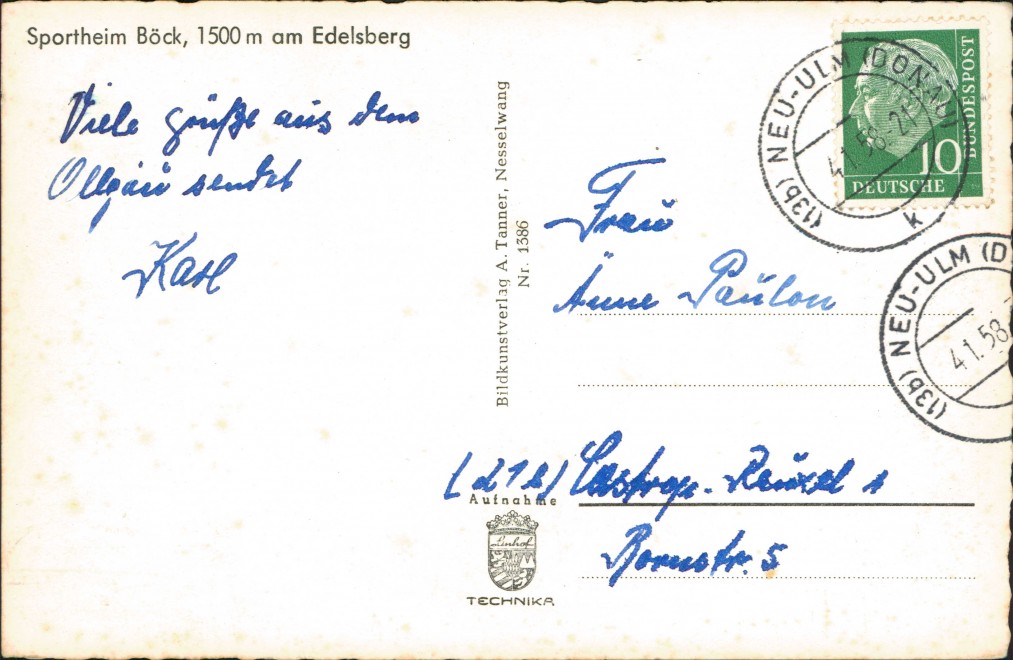 Sportheim Böck, 1500 m am Edelsberg
Viele grüße aus dem
Allgäu sendet
Karl
Bildkunstverlag A. Tanner, Nesselwang
Nr. 1386
DEUTSCHE
BUNDESPOST
10
(13b) NEU-ULM (DONAU)
4.1.58.-21
k
(13b) NEU-ULM (D
4.1.58
Frau
Änne Paulon
(21b) Castrop-Rauxel 1
Bornstr. 5
Aufnahme
Linhof
TECHNIKA